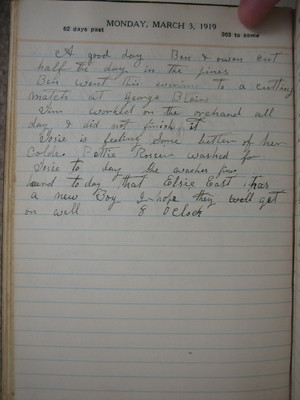 MONDAY, MARCH 3, 1919
62 days past
303 to come
A good day Ben & owen cut
half the day in the pines
Ben went this evening to a cutting
match at George Blains
Jim worked on the orchard all
day & did not finish it
Josie is feeling some better of her
Colds. Rosser washed for
Josie to day
hund to day that Elsie East has
a new Boy I hope they will get
on well 8 OClock